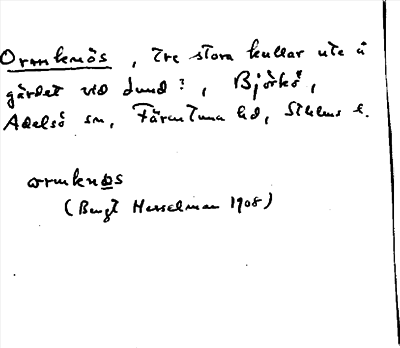 Ormknös, tre stora kullar ute å
gärdet vid Lund?, Björkö,
Adelsö sn, Färentuna hd, Sthlms l.
ormknøs
(Bengt Hesselman 1908)